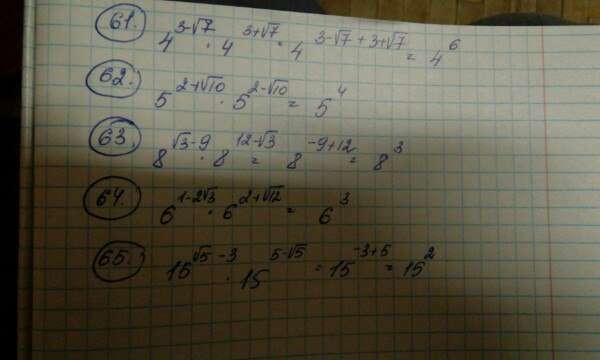 61. 4^(3-√7) · 4^(3+√7) = 4^(3-√7+3+√7) = 4^6
62. 5^(2+√10) · 5^(2-√10) = 5^4
63. 8^(√3-9) · 8^(12-√3) = 8^(-9+12) = 8^3
64. 6^(1-2√3) · 6^(2+√12) = 6^3
65. 15^(√5-3) · 15^(5-√5) = 15^(-3+5) = 15^2